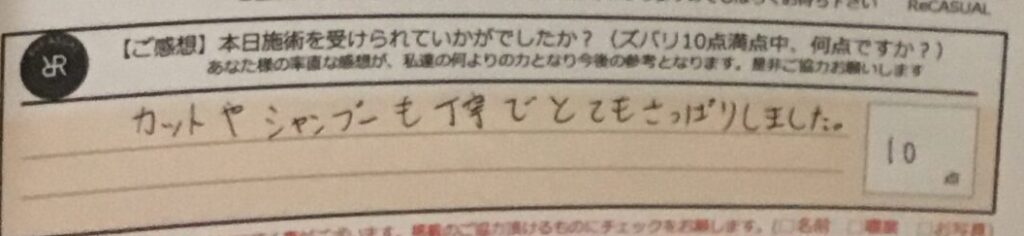 お待ち下さい ReCASUAL
R
【ご感想】本日施術を受けられていかがでしたか？（ズバリ10点満点中、何点ですか？）
あなた様の率直な感想が、私達の何よりの力となり今後の参考となります。是非ご協力お願いします
カットやシャンプーも丁寧でとてもさっぱりしました。
10
点
掲載のご協力頂けるものにチェックをお願します。（□名前 □職業 □お写真）